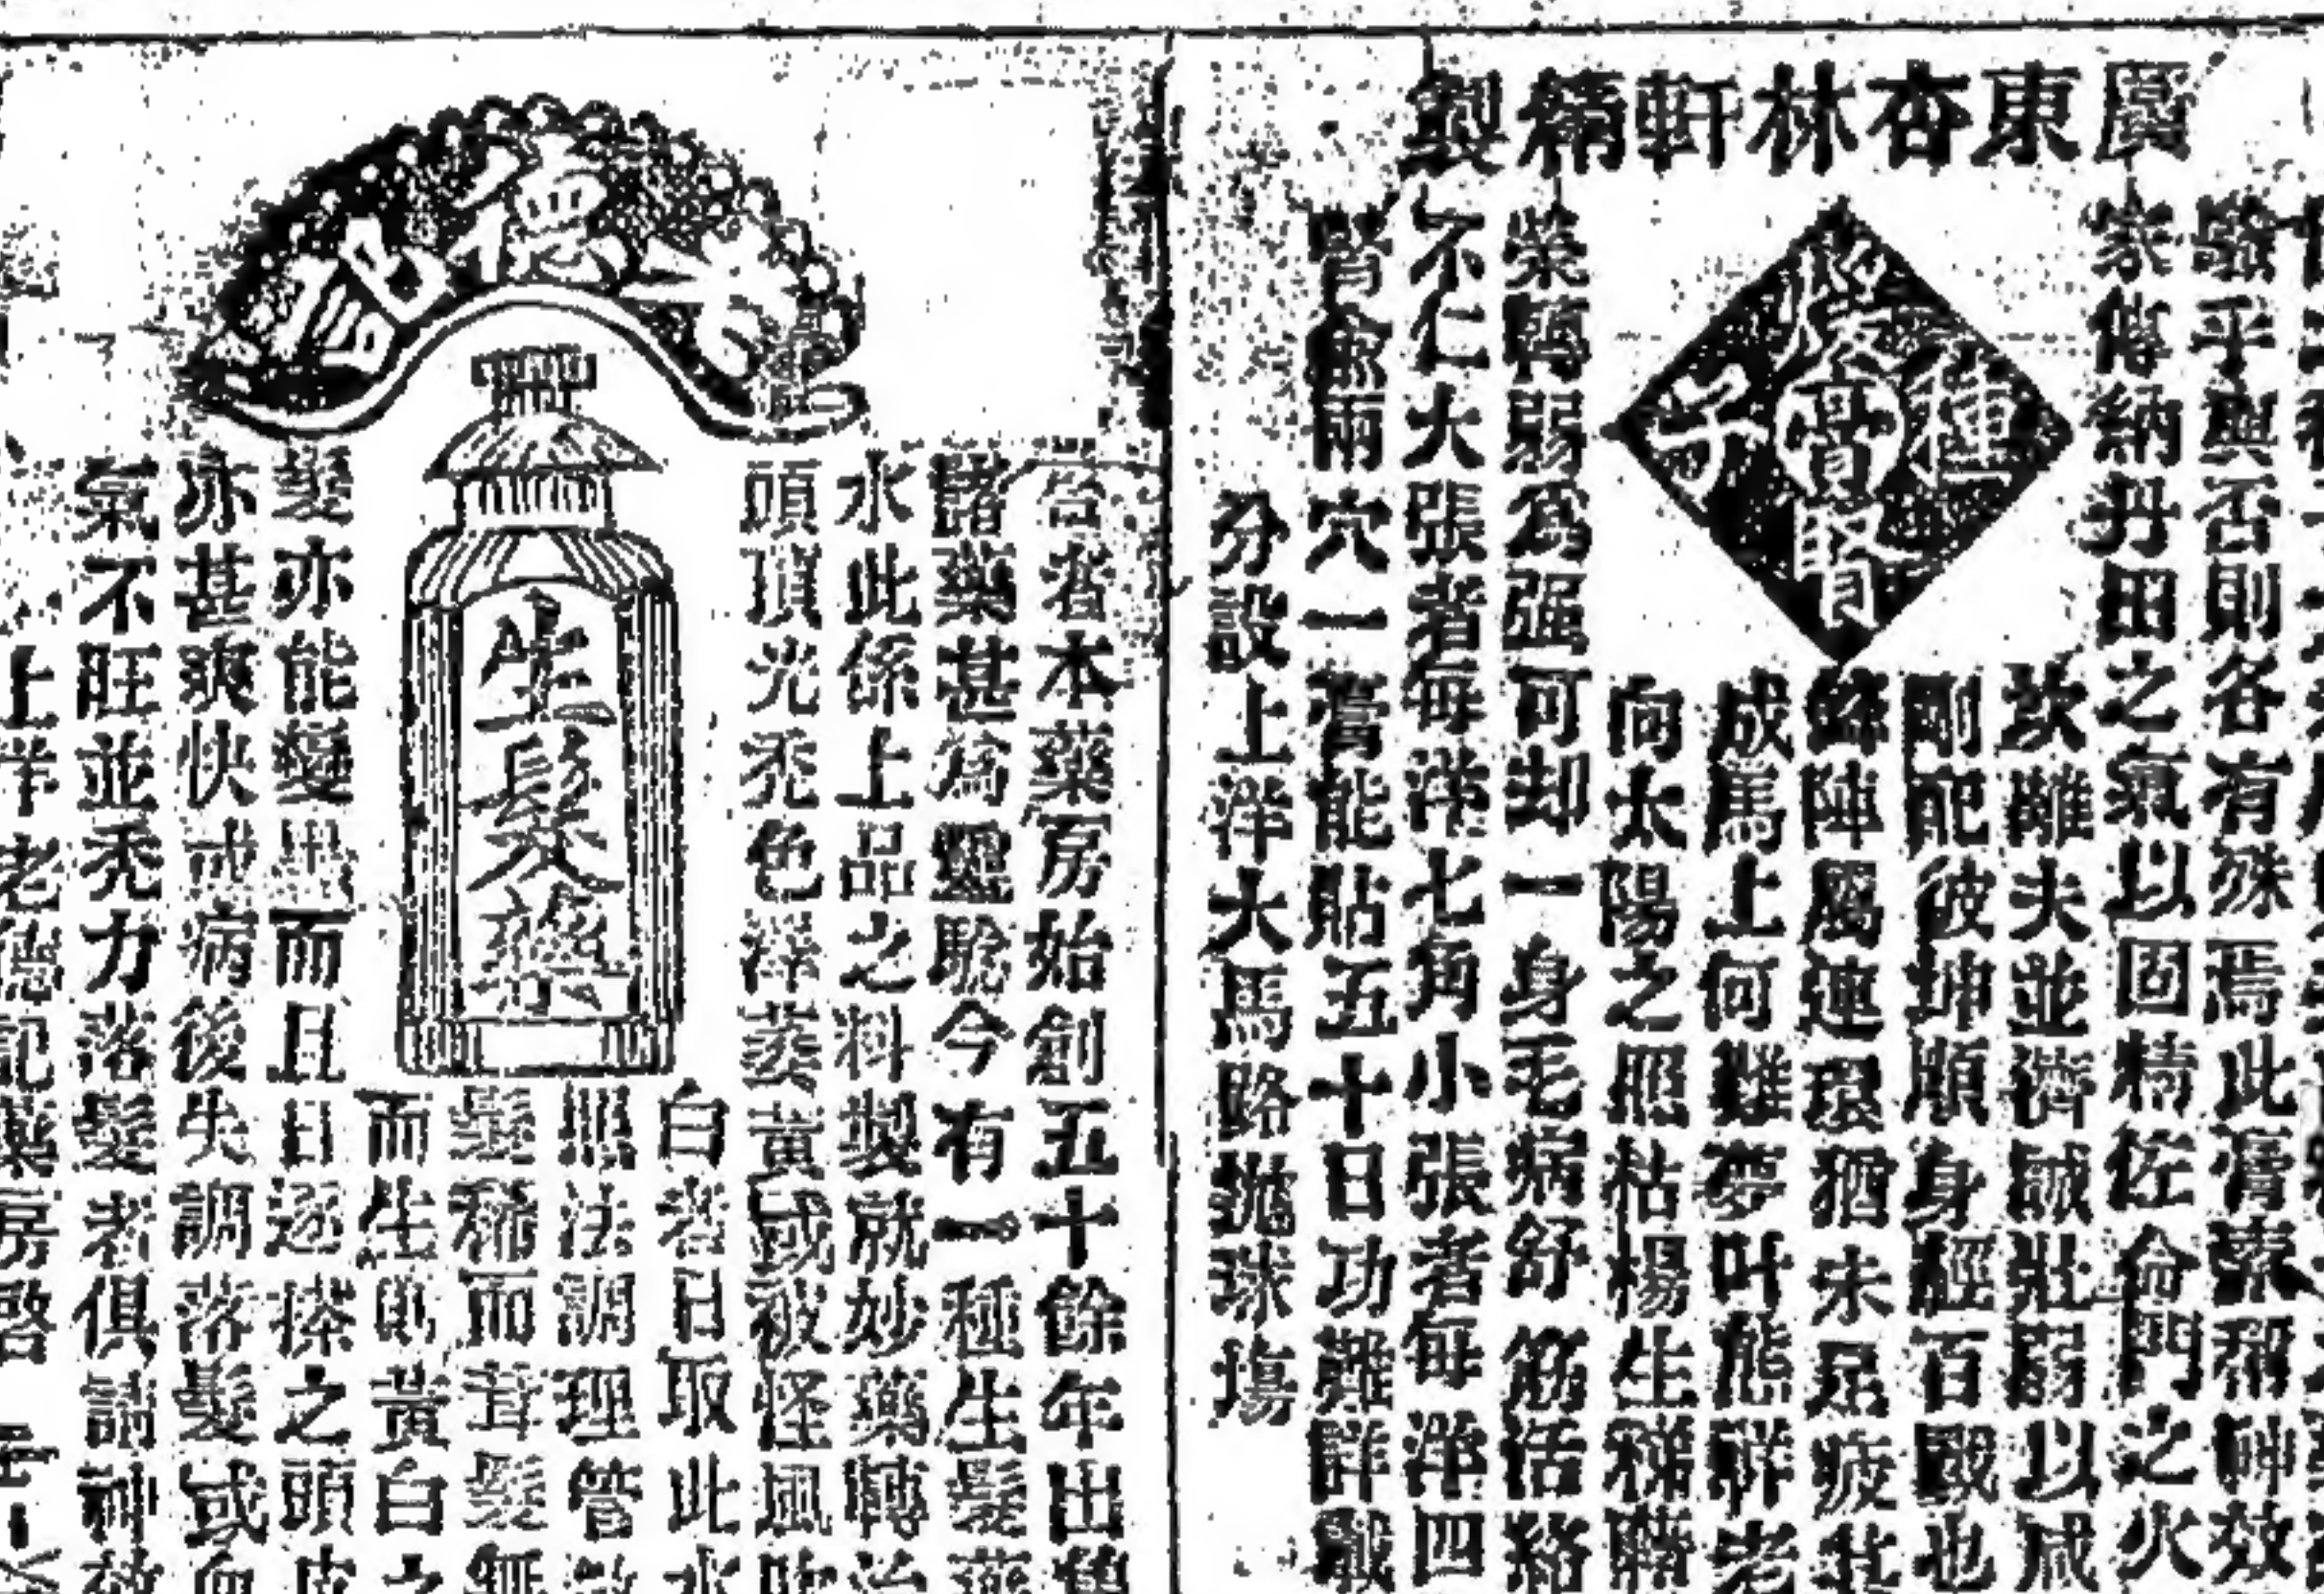 廣東杏林軒精製
種子
煖腎膏
發乎與否則各有殊焉此膏素稱神效
家傳納丹田之氣以固精佐命門之火
歟雖夫並濟誠壯弱以咸
剛配彼坤順身經百戰也
陣屬連環猶未足疲
成馬上何難夢叶熊祥老
向太陽之照枯楊生稊
榮轉弱為强可却一身毛病舒筋活絡
不仁大張者每洋七角小張者每洋四
腎兪兩穴一膏能貼五十日功難詳戰
分設上洋大馬路拋球塲
老德記
生髮藥
告者本藥房始創五十餘年出售
諸藥甚為靈驗今有一種生髮藥
水此係上品之料製就妙藥轉治
頭頂光禿色澤萎黃或被怪風吹
白者日取此水
照法調理管
髮稀而茸髮無
而生則黃白之
髮亦能變黑而且日逐搽之頭皮
亦甚爽快或病後失調落髮或血
氣不旺並禿力落髮者俱請神效
上洋老德記藥房啓